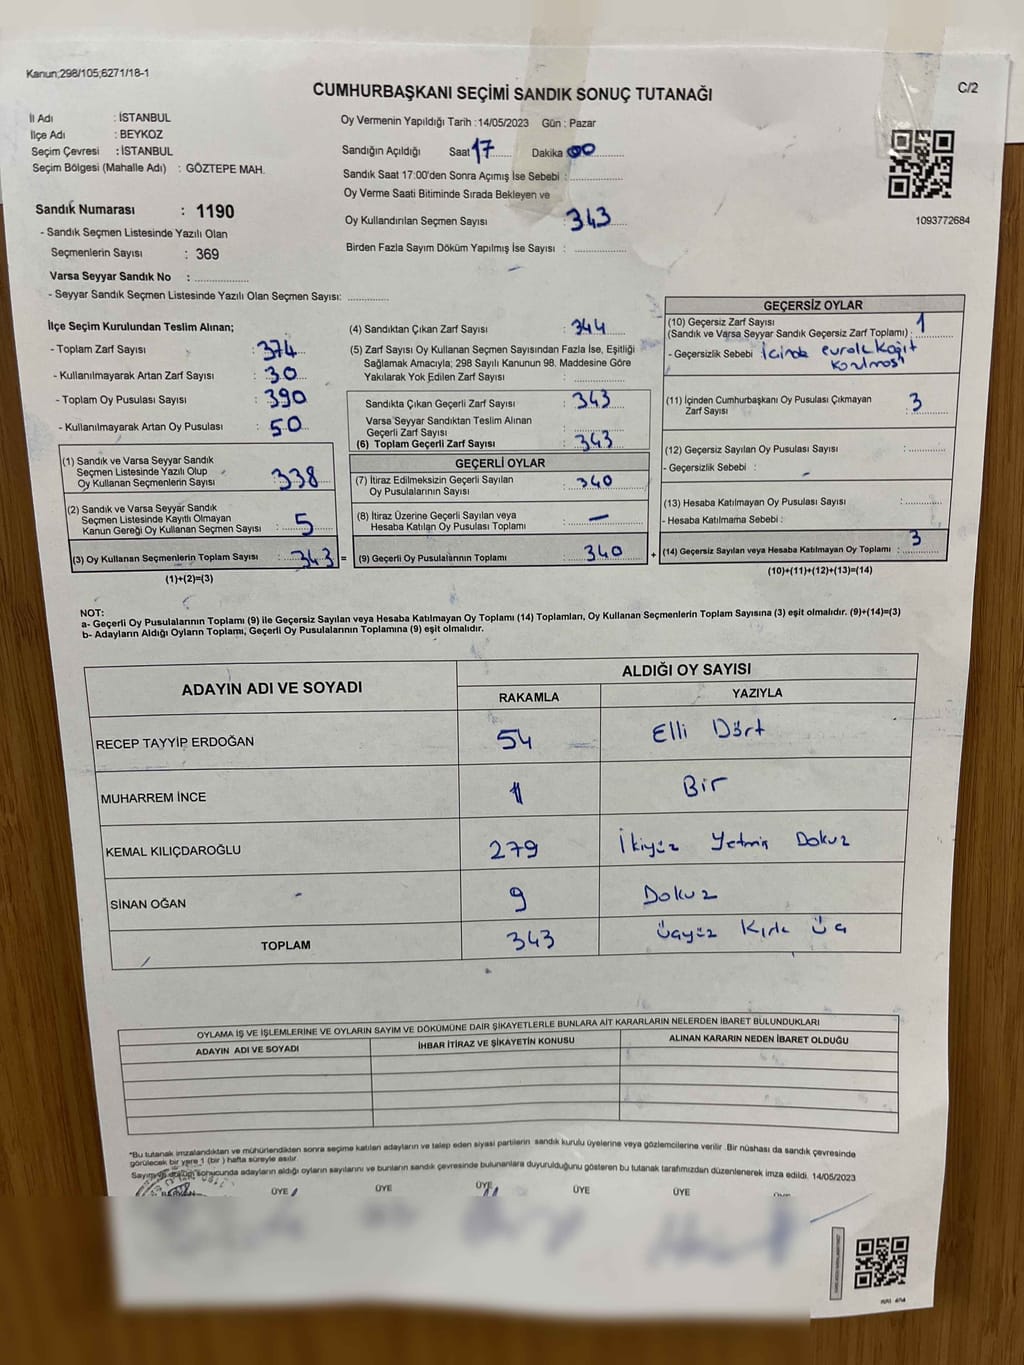 Kanun;298/105;6271/18-1
CUMHURBAŞKANI SEÇİMİ SANDIK SONUÇ TUTANAĞI
C/2
İl Adı : İSTANBUL
İlçe Adı : BEYKOZ
Seçim Çevresi : İSTANBUL
Seçim Bölgesi (Mahalle Adı) : GÖZTEPE MAH.
Sandık Numarası : 1190
- Sandık Seçmen Listesinde Yazılı Olan
Seçmenlerin Sayısı : 369
Varsa Seyyar Sandık No :
- Seyyar Sandık Seçmen Listesinde Yazılı Olan Seçmen Sayısı:
Oy Vermenin Yapıldığı Tarih :14/05/2023 Gün : Pazar
Sandığın Açıldığı Saat 17 Dakika 00
Sandık Saat 17:00'den Sonra Açımış İse Sebebi :
Oy Verme Saati Bitiminde Sırada Bekleyen ve
Oy Kullandırılan Seçmen Sayısı : 343
Birden Fazla Sayım Döküm Yapılmış İse Sayısı :
1093772684
İlçe Seçim Kurulundan Teslim Alınan;
- Toplam Zarf Sayısı : 374
- Kullanılmayarak Artan Zarf Sayısı : 30
- Toplam Oy Pusulası Sayısı : 390
- Kullanılmayarak Artan Oy Pusulası : 50
(1) Sandık ve Varsa Seyyar Sandık
Seçmen Listesinde Yazılı Olup
Oy Kullanan Seçmenlerin Sayısı : 338
(2) Sandık ve Varsa Seyyar Sandık
Seçmen Listesinde Kayıtlı Olmayan
Kanun Gereği Oy Kullanan Seçmen Sayısı : 5
(3) Oy Kullanan Seçmenlerin Toplam Sayısı : 343 =
(1)+(2)=(3)
(4) Sandıktan Çıkan Zarf Sayısı : 344
(5) Zarf Sayısı Oy Kullanan Seçmen Sayısından Fazla İse, Eşitliği
Sağlamak Amacıyla; 298 Sayılı Kanunun 98. Maddesine Göre
Yakılarak Yok Edilen Zarf Sayısı :
Sandıkta Çıkan Geçerli Zarf Sayısı : 343
Varsa Seyyar Sandıktan Teslim Alınan
Geçerli Zarf Sayısı :
(6) Toplam Geçerli Zarf Sayısı : 343
GEÇERLİ OYLAR
(7) İtiraz Edilmeksizin Geçerli Sayılan
Oy Pusulalarının Sayısı : 340
(8) İtiraz Üzerine Geçerli Sayılan veya
Hesaba Katılan Oy Pusulası Toplamı : —
(9) Geçerli Oy Pusulalarının Toplamı : 340 +
GEÇERSİZ OYLAR
(10) Geçersiz Zarf Sayısı
(Sandık ve Varsa Seyyar Sandık Geçersiz Zarf Toplamı) : 1
- Geçersizlik Sebebi : İcinde evrak kağıt
konulmuş
(11) İçinden Cumhurbaşkanı Oy Pusulası Çıkmayan
Zarf Sayısı : 3
(12) Geçersiz Sayılan Oy Pusulası Sayısı :
- Geçersizlik Sebebi :
(13) Hesaba Katılmayan Oy Pusulası Sayısı :
- Hesaba Katılmama Sebebi :
(14) Geçersiz Sayılan veya Hesaba Katılmayan Oy Toplamı : 3
(10)+(11)+(12)+(13)=(14)
NOT:
a- Geçerli Oy Pusulalarının Toplamı (9) ile Geçersiz Sayılan veya Hesaba Katılmayan Oy Toplamı (14) Toplamları, Oy Kullanan Seçmenlerin Toplam Sayısına (3) eşit olmalıdır. (9)+(14)=(3)
b- Adayların Aldığı Oyların Toplamı, Geçerli Oy Pusulalarının Toplamına (9) eşit olmalıdır.
ADAYIN ADI VE SOYADI ALDIĞI OY SAYISI
RAKAMLA YAZIYLA
RECEP TAYYİP ERDOĞAN 54 Elli Dört
MUHARREM İNCE 1 Bir
KEMAL KILIÇDAROĞLU 279 İkiyüz Yetmiş Dokuz
SİNAN OĞAN 9 Dokuz
TOPLAM 343 Üçyüz Kırk Üç
OYLAMA İŞ VE İŞLEMLERİNE VE OYLARIN SAYIM VE DÖKÜMÜNE DAİR ŞİKAYETLERLE BUNLARA AİT KARARLARIN NELERDEN İBARET BULUNDUKLARI
ADAYIN ADI VE SOYADI İHBAR İTİRAZ VE ŞİKAYETİN KONUSU ALINAN KARARIN NEDEN İBARET OLDUĞU
*Bu tutanak imzalandıktan ve mühürlendikten sonra seçime katılan adayların ve talep eden siyasi partilerin sandık kurulu üyelerine veya gözlemcilerine verilir. Bir nüshası da sandık çevresinde
görülecek bir yere 1 (bir ) hafta süreyle asılır.
Sayım ve döküm sonucunda adayların aldığı oyların sayılarını ve bunların sandık çevresinde bulunanlara duyurulduğunu gösteren bu tutanak tarafımızdan düzenlenerek imza edildi. 14/05/2023
ÜYE ÜYE ÜYE ÜYE ÜYE